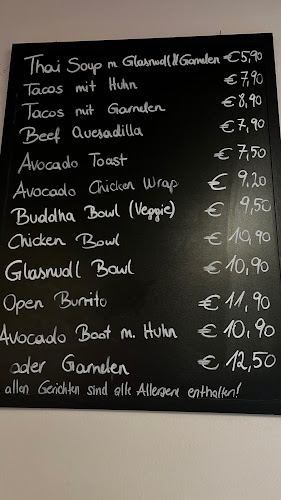 Thai Soup m. Glasnudl & Garnelen €5,90
Tacos mit Huhn €7,90
Tacos mit Garnelen €8,90
Beef Quesadilla €7,90
Avocado Toast €7,50
Avocado Chicken Wrap €9,20
Buddha Bowl (Veggie) €9,50
Chicken Bowl €10,90
Glasnudl Bowl €10,90
Open Burrito €11,90
Avocado Boot m. Huhn €10,90
oder Garnelen €12,50
allen Gerichten sind alle Allergene enthalten!